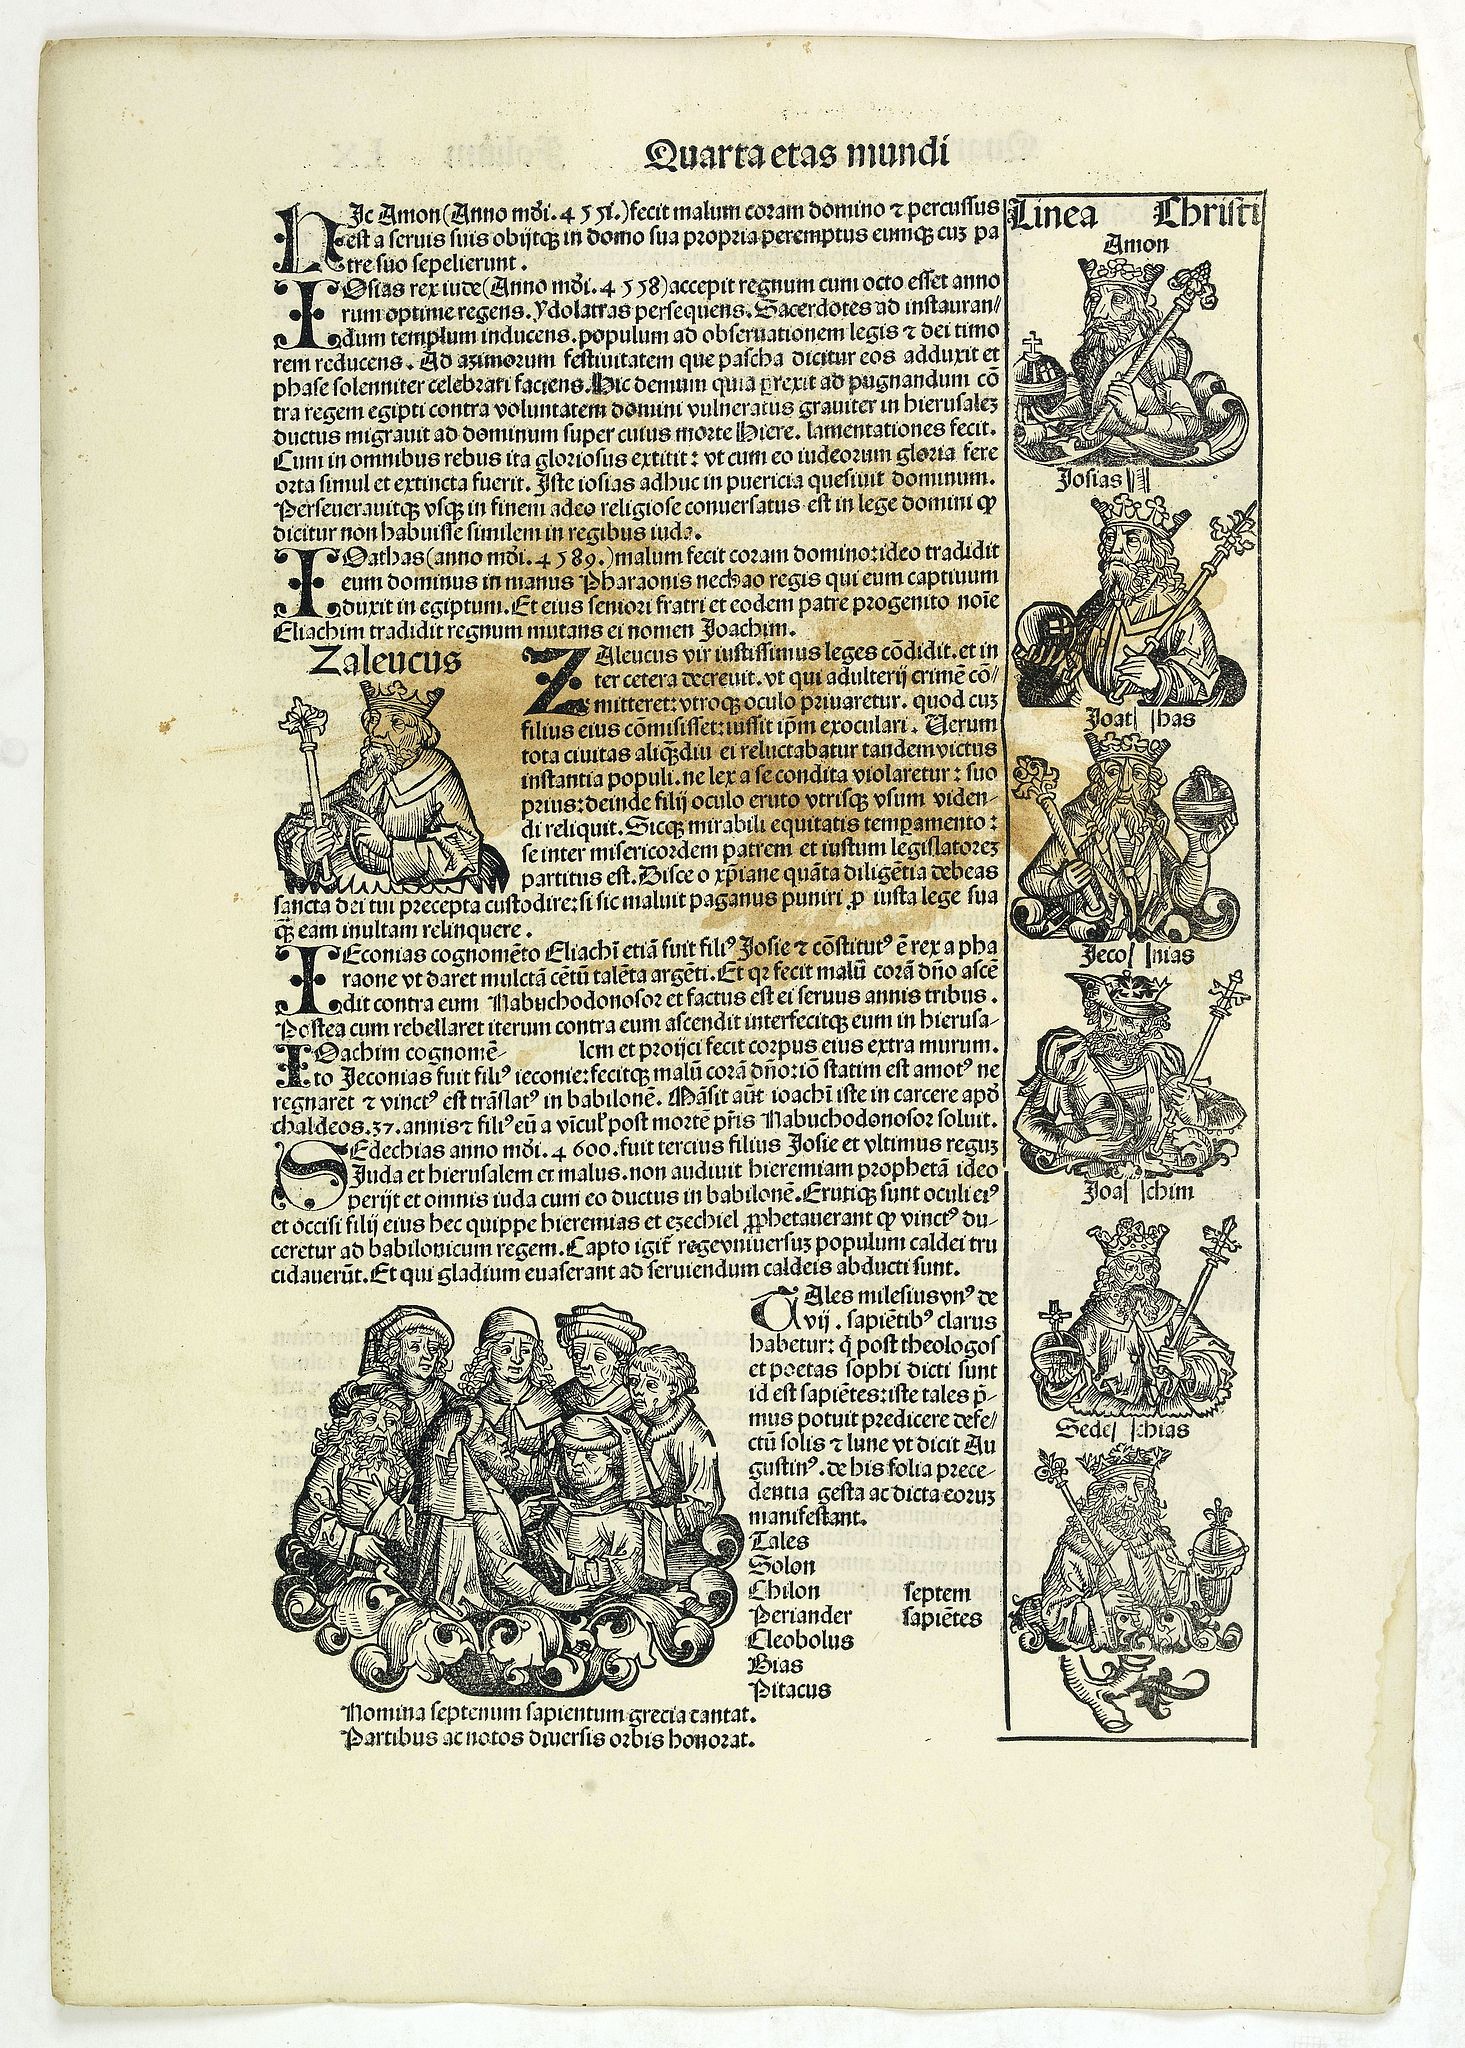 Quarta etas mundi
HIc Amon (Anno mūdi. 4551.) fecit malum coram domino ⁊ percussus
est a seruis suis obijtqꝫ in domo sua propria peremptus eumqꝫ cuꝫ pa
tre suo sepelierunt.
IOsias rex iude (Anno mūdi. 4558) accepit regnum cum octo esset anno
rum optime regens. ydolatras persequens. Sacerdotes ad instauran⸗
dum templum inducens. populum ad obseruationem legis ⁊ dei timo
rem reducens. Ad azimorum festiuitatem que pascha dicitur eos adduxit et
phase solenniter celebrari faciens. Hic demum quia ꝑrexit ad pugnandum cō
tra regem egipti contra voluntatem domini vulneratus grauiter in hierusaleꝫ
ductus migrauit ad dominum super cuius morte Hiere. lamentationes fecit.
Cum in omnibus rebus ita gloriosus extitit: vt cum eo iudeorum gloria fere
orta simul et extincta fuerit. Iste iosias adhuc in puericia quesiuit dominum.
Perseuerauitqꝫ vsqꝫ in finem adeo religiose conuersatus est in lege domini ꝙ
dicitur non habuisse similem in regibus iuda.
IOathas (anno mūdi. 4589.) malum fecit coram domino: ideo tradidit
eum dominus in manus Pharaonis nechao regis qui eum captiuum
duxit in egiptum. Et eius seniori fratri et eodem patre progenito noīe
Eliachim tradidit regnum mutans ei nomen Joachim.
Zaleucus
ZAleucus vir iustissimus leges cōdidit. et in
ter cetera decreuit. vt qui adulterij crimē cō⸗
mitteret: vtroqꝫ oculo priuaretur. quod cuꝫ
filius eius cōmisisset: iussit ip̄m exoculari. Uerum
tota ciuitas aliqꝫdiu ei reluctabatur tandem victus
instantia populi. ne lex a se condita violaretur: suo
prius: deinde filij oculo eruto vtrisqꝫ vsum viden⸗
di reliquit. Sicqꝫ mirabili equitatis temꝑamento:
se inter misericordem patrem et iustum legislatoreꝫ
partitus est. Disce o xp̄iane quāta diligētia debeas
sancta dei tui precepta custodire: si sic maluit paganus puniri ꝓ iusta lege sua
qꝫ eam inultam relinquere.
IEconias cognomēto Eliachī etiā fuit filiꝰ Josie ⁊ cōstitutꝰ ē rex a pha
raone vt daret mulctā cētū talēta argēti. Et qꝛ fecit malū corā dn̄o ascē
dit contra eum Nabuchodonosor et factus est ei seruus annis tribus.
Postea cum rebellaret iterum contra eum ascendit interfecitqꝫ eum in hierusa⸗
lem et proijci fecit corpus eius extra murum.
IOachim cognomē⸗
to Jeconias fuit filiꝰ ieconie: fecitqꝫ malū corā dn̄o: iō statim est amotꝰ ne
regnaret ⁊ vinctꝰ est trāslatꝰ in babilonē. Māsit aūt ioachī iste in carcere apd̄
chaldeos. 37. annis ⁊ filiꝰ eū a vīcul̓ post mortē pr̄is Nabuchodonosor soluit.
SEdechias anno mūdi. 4600. fuit tercius filius Josie et vltimus reguꝫ
Juda et hierusalem et malus. non audiuit hieremiam prophetā ideo
perijt et omnis iuda cum eo ductus in babilonē. Erutiqꝫ sunt oculi eiꝰ
et occisi filij eius hec quippe hieremias et ezechiel ꝓphetauerant ꝙ vinctꝰ du⸗
ceretur ad babilonicum regem. Capto igit̄ rege vniuersuꝫ populum caldei tru
cidauerūt. Et qui gladium euaserant ad seruiendum caldeis abducti sunt.
TAles milesius vnꝰ de
vij. sapiētibꝰ clarus
habetur: q̄ post theologos
et poetas sophi dicti sunt
id est sapiētes: iste tales p̄⸗
mus potuit predicere defe⸗
ctū solis ⁊ lune vt dicit Au
gustinꝰ. de his folia prece⸗
dentia gesta ac dicta eoruꝫ
manifestant.
Tales
Solon
Chilon septem
Periander sapiētes
Cleobolus
Bias
Pitacus
Nomina septenum sapientum grecia cantat.
Partibus ac notos diuersis orbis honorat.
Linea Christi
Amon
Josias
Joathas
Jeconias
Joachim
Sedechias